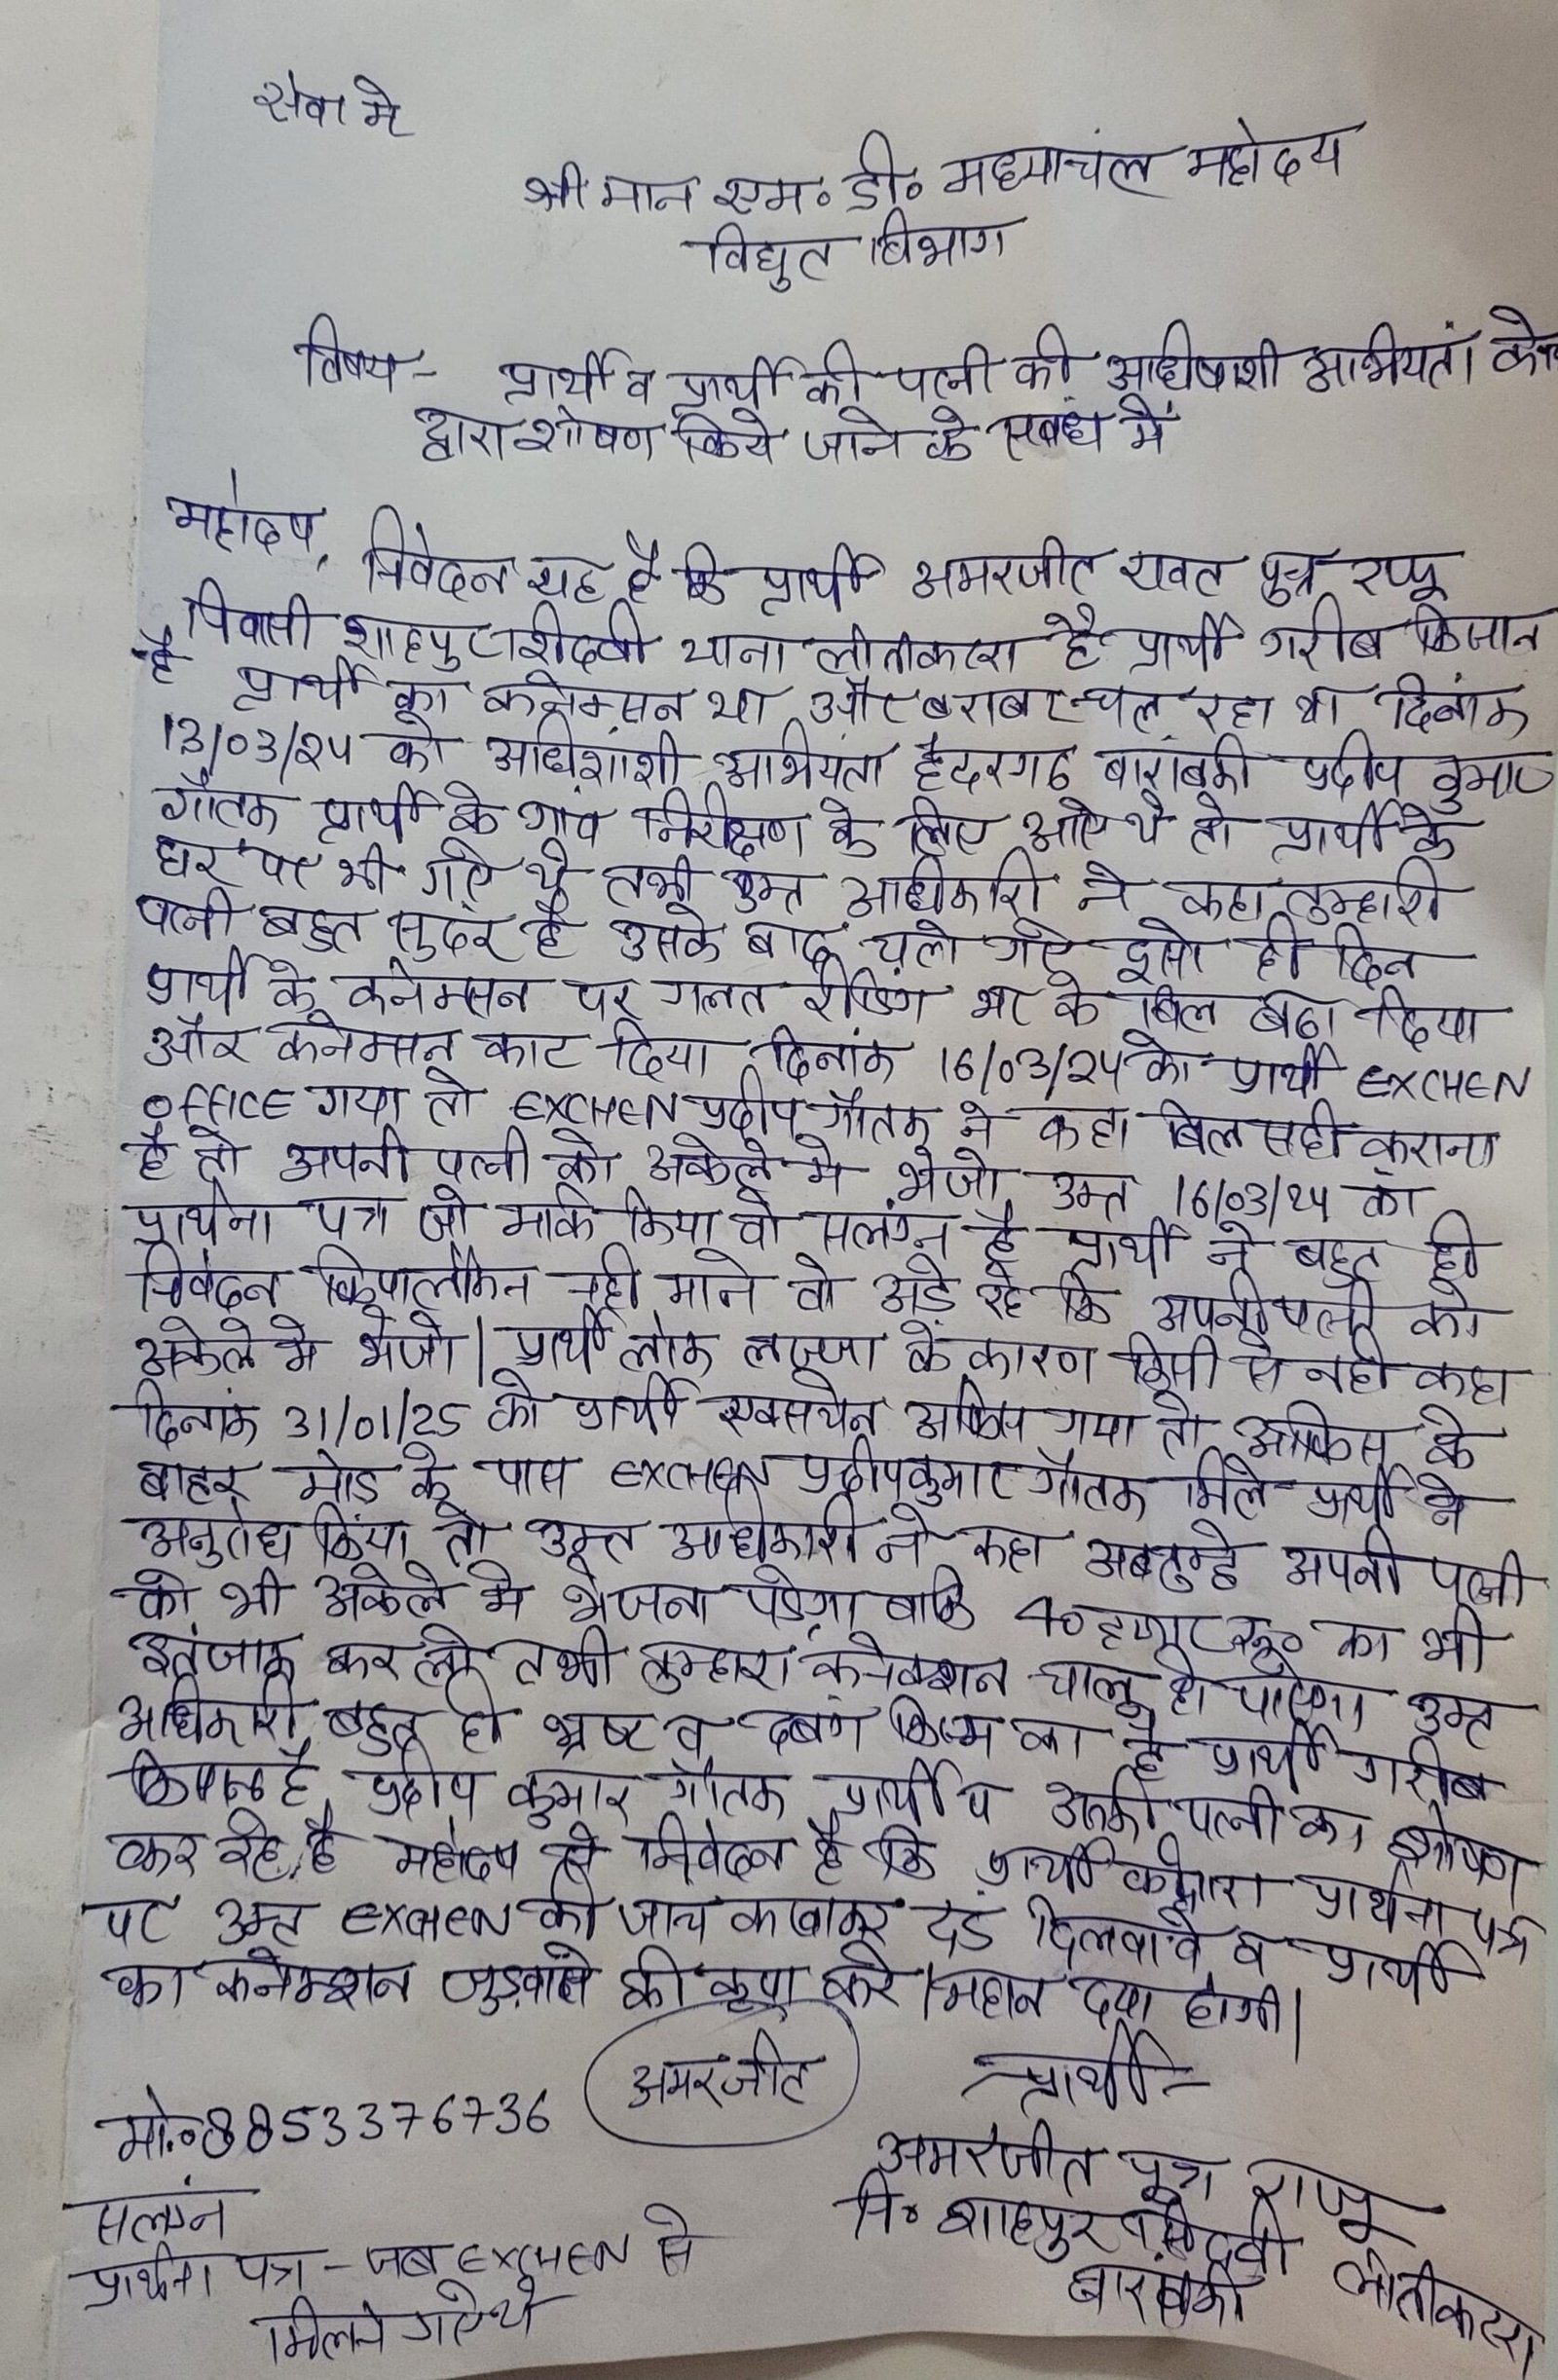 सेवा मे
श्री मान एम॰ डी॰ मध्यांचल महोदय
विद्युत विभाग
विषय - प्रार्थी व प्रार्थी की पत्नी की अधीषाशी अभियतां के
द्वारा शोषण किये जाने के सबंध में
महोदय,
निवेदन यह है कि प्रार्थी अमरजीत रावत पुत्र राजू
निवासी शाहपुर थाना लोनीकटरा है प्रार्थी गरीब किसान
है प्रार्थी का कनेक्सन था और बराबर चल रहा था दिनांक
13/03/24 को अधिशांशी अभियंता हैदरगढ बाराबंकी प्रदीप कुमार
गौतम प्रार्थी के गांव निरीक्षण के लिए आऐ थे तो प्रार्थी के
घर पर भी गऐ थे तभी उक्त अधिकारी ने कहा तुम्हारी
पत्नी बहुत सुदंर है उसके बाद चले गऐ दूसरे ही दिन
प्रार्थी के कनेक्सन पर गलत रीडिंग भर के बिल बढा दिया
और कनेक्सन काट दिया दिनांक 16/03/24 को प्रार्थी EXCHEN
OFFICE गया तो EXCHEN प्रदीप गौतम ने कहा बिल सही कराना
है तो अपनी पत्नी को अकेले मे भेजो उक्त 16/03/24 का
प्रार्थना पत्र जो मार्क किया वो सलंग्न है प्रार्थी ने बहुत ही
निवेदन किया लेकिन नही माने वो अड़े रहे कि अपनी पत्नी को
अकेले मे भेजो | प्रार्थी लोक लज्जा के कारण किसी से नही कहा
दिनांक 31/01/25 को प्रार्थी एक्सचेन आफिस गया तो आफिस के
बाहर मोड के पास EXCHEN प्रदीप कुमार गौतम मिले प्रार्थी ने
अनुरोध किया तो उक्त अधिकारी ने कहा अब तुम्हे अपनी पत्नी
को भी अकेले मे भेजना पडेगा बल्कि 40 हजार रू० का भी
इतंजाम कर लो तभी तुम्हारा कनेक्शन चालू हो पाऐगा उक्त
अधिकारी बहुत ही भ्रष्ट व दबंग किस्म का है प्रार्थी गरीब
किसान है प्रदीप कुमार गौतम प्रार्थी व उसकी पत्नी का शोषण
कर रहे है महोदय से निवेदन है कि प्रार्थी के द्वारा प्रार्थना पत्र
पर उक्त EXCHEN की जाच करवाकर दडं दिलवावे व प्रार्थी
का कनेक्शन जुड़वाने की कृपा करे | महान दया होगी |
अमरजीत
प्रार्थी -
मो०8853376736
अमरजीत पुत्र राजू
नि० शाहपुर लोनीकटरा
बाराबंकी
सलंग्न
प्रार्थना पत्र - जब EXCHEN से
मिलने गऐ थे